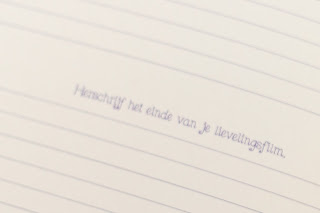 Herschrijf het einde van je lievelingsfilm.